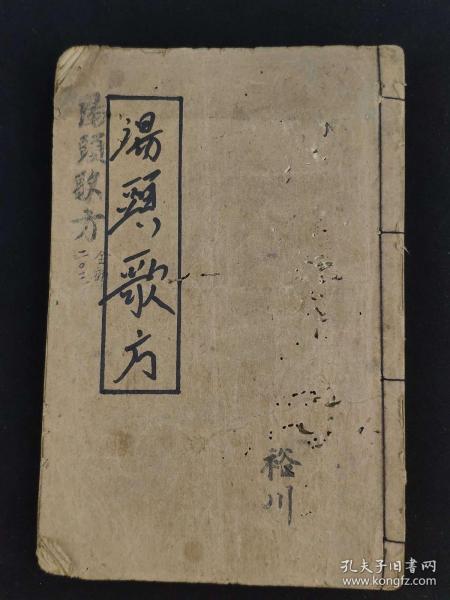 裕川
湯頭歌方
湯頭歌方
孔夫子旧书网
www.kongfz.com